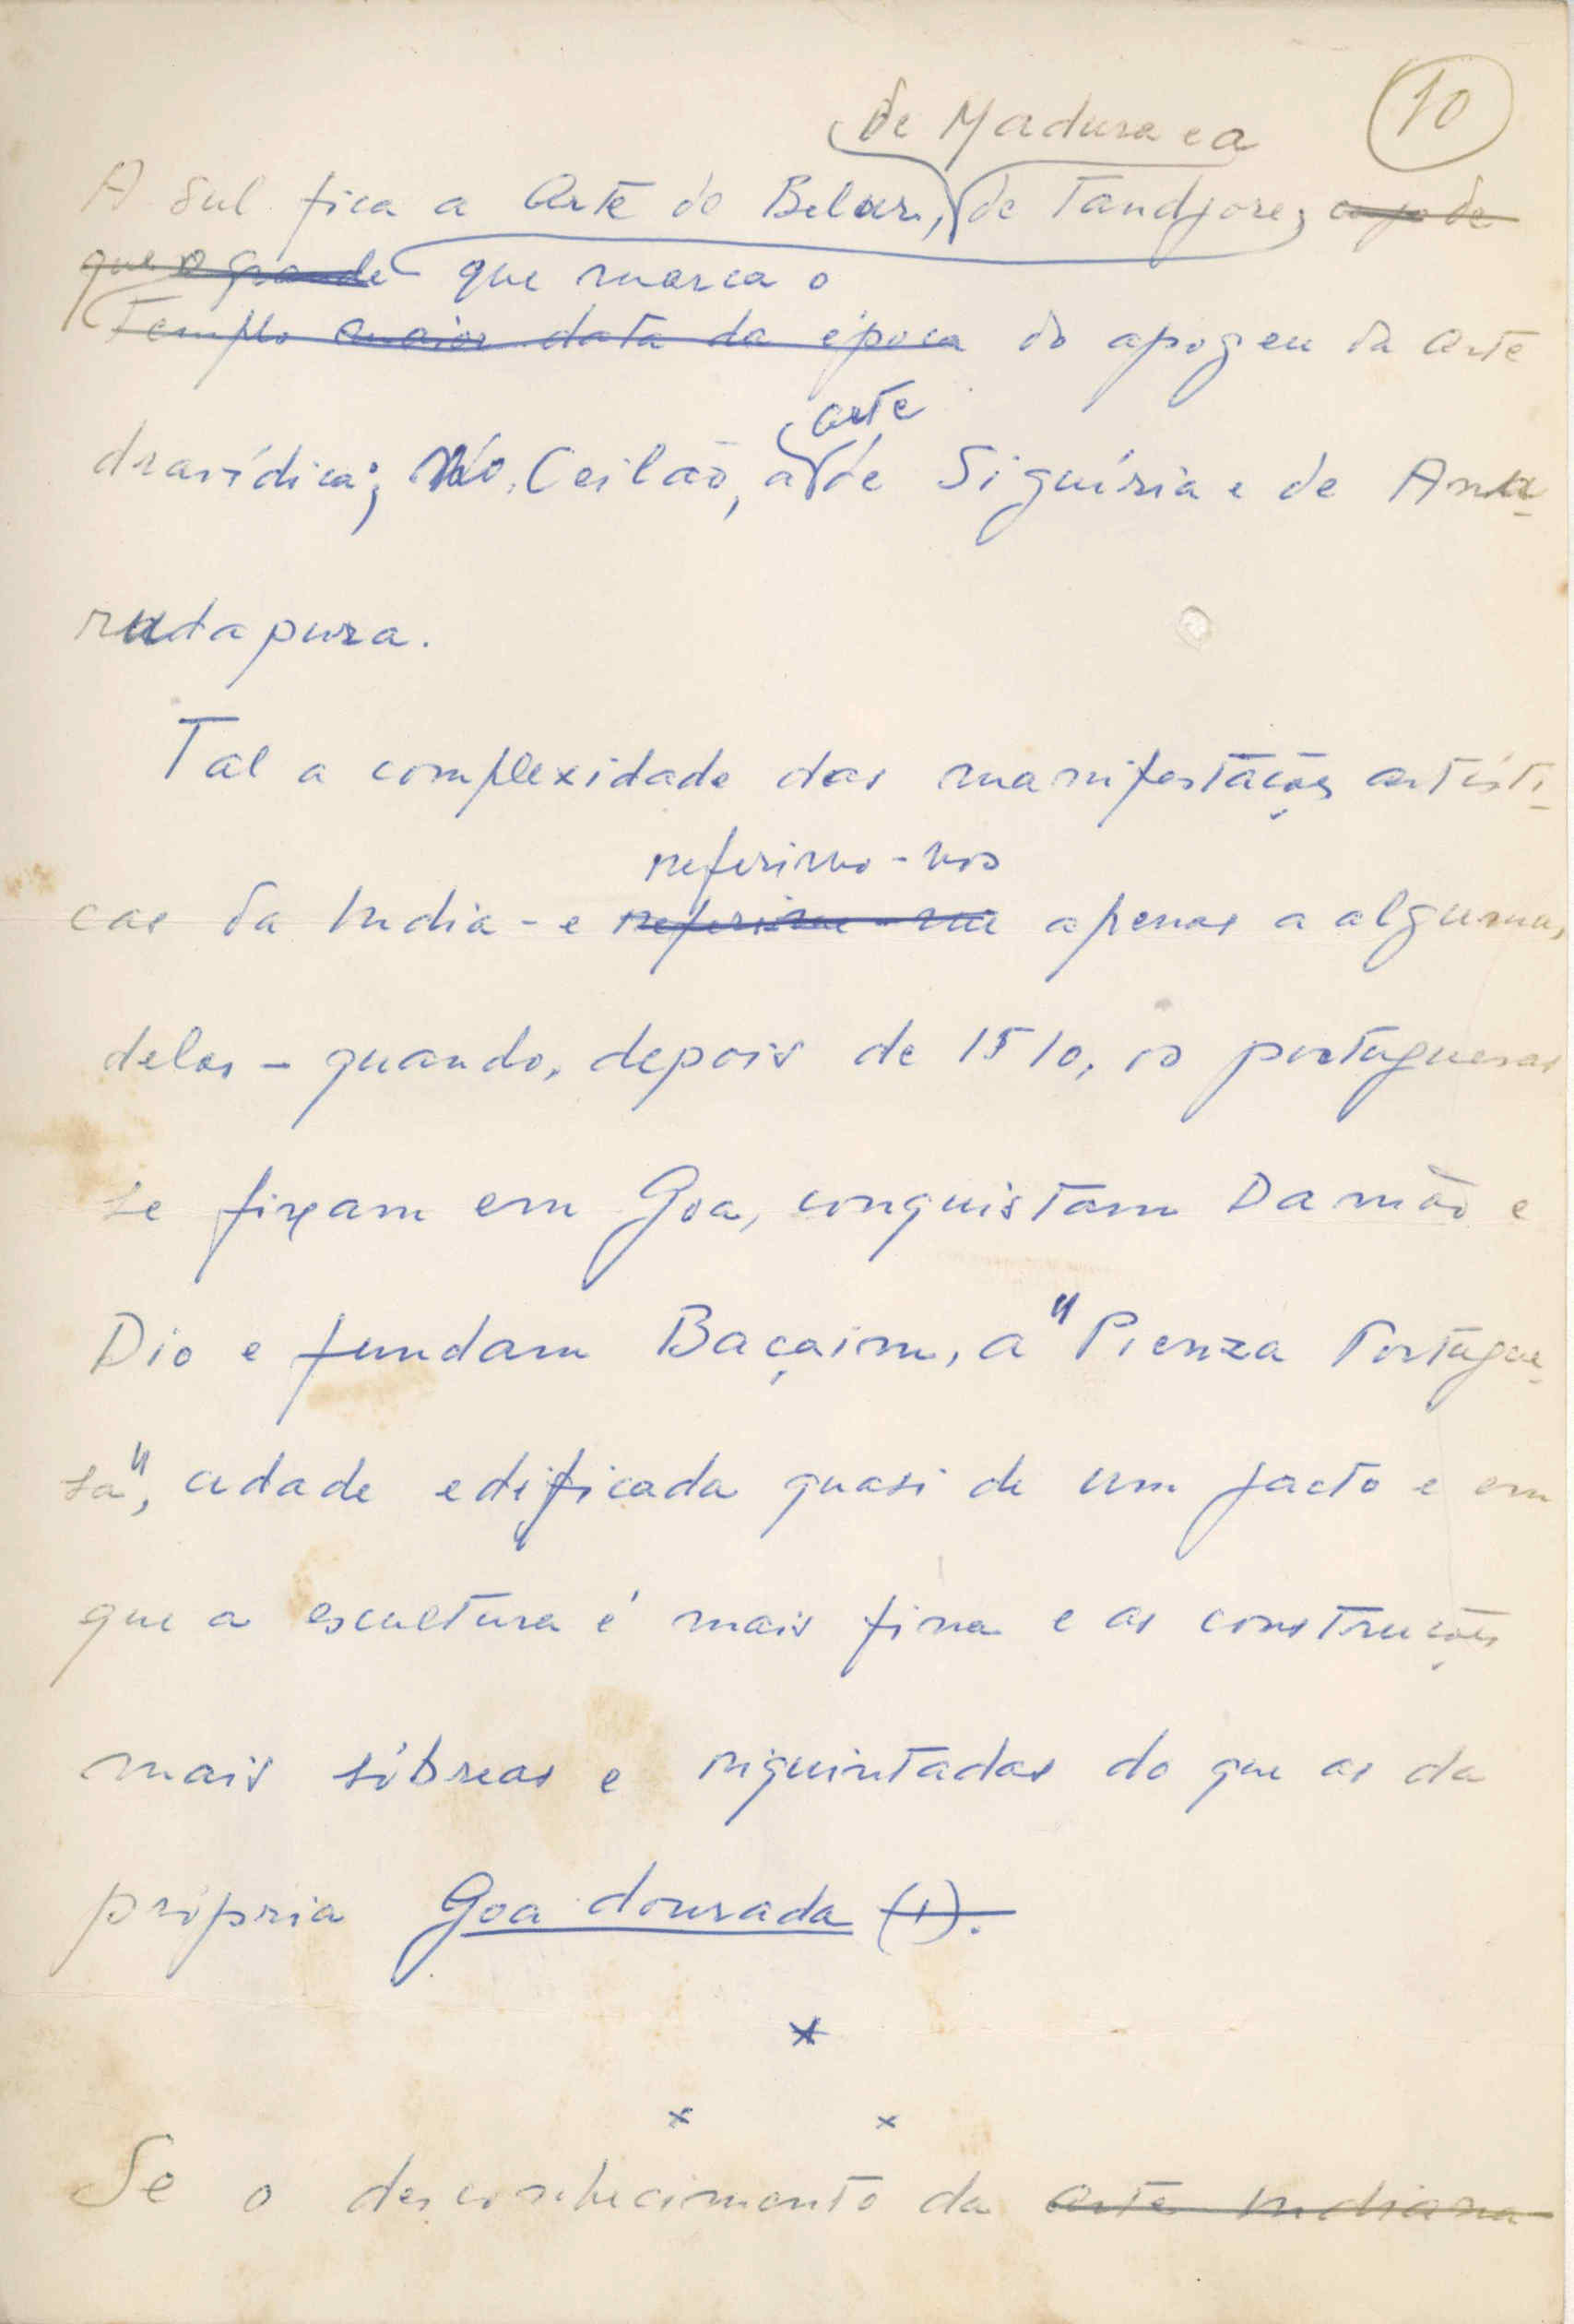 10
de Madura e a
A Sul fica a Arte de Belur, de Tandjore,
que o grande que marca o
Templo maior data da época do apogeu da Arte
arte
dravídica; No Ceilão, a de Siguíria e de Anu-
radapura.
Tal a complexidade das manifestações artísti-
referimo-nos
cas da India - e referimo-me apenas a algumas
delas - quando, depois de 1510, os portugueses
se fixam em Goa, conquistam Damão e
Dio e fundam Baçaim, a "Pienza Portugue-
sa", cidade edificada quasi de um jacto e em
que a escultura é mais fina e as construções
mais sóbreas e riquintadas do que as da
própria Goa dourada (1).
*
* *
Se o desconhecimento da arte indiana